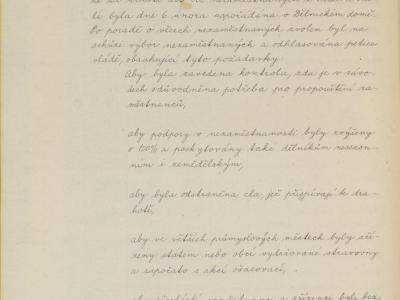 li byla dne 6 února uspořádána v Dělnickém domě.
Po poradě o věcech nezaměstnaných zvolen byl na
schůzi výbor nezaměstnaných a odhlasována petice
vládě, obsahující tyto požadavky:
Aby byla zavedena kontrola, zda je v závo-
dech odůvodněna potřeba pro propouštění za-
městnanců,
aby podpory v nezaměstnanosti byly zvýšeny
o 100% a poskytovány také dělníkům nesezon-
ním i zemědělským,
aby byla odstraněna cla, jež přispívají k dra-
hotě,
aby ve větších průmyslových městech byly zří-
zeny státem nebo obcí vydržované stravovny
a započato s akcí ošacovací,